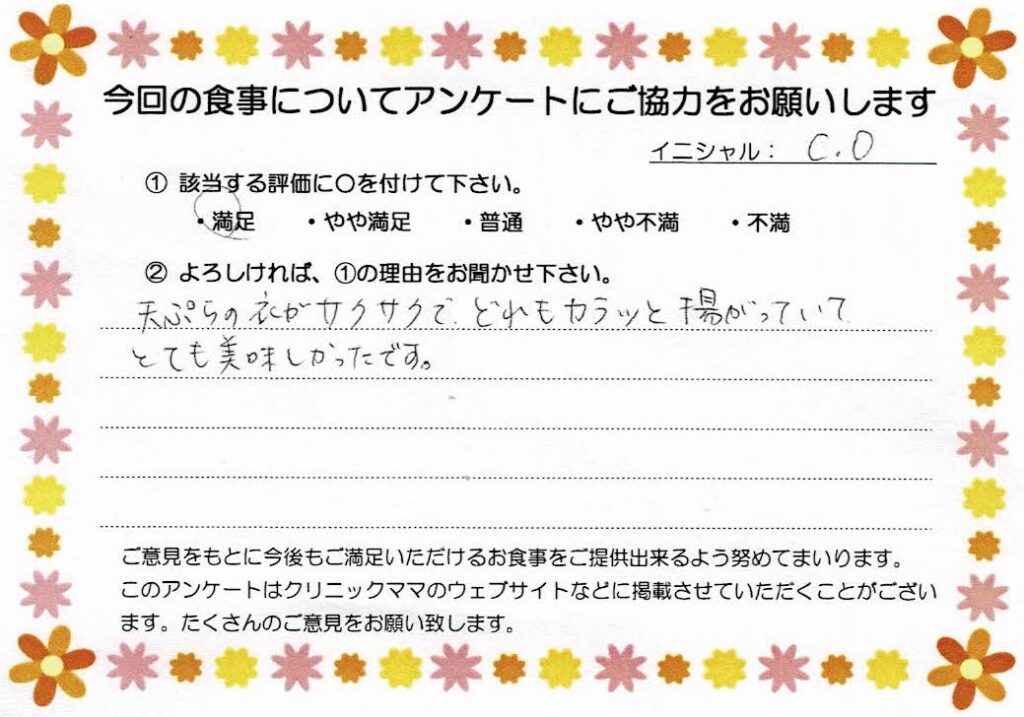 今回の食事についてアンケートにご協力をお願いします
イニシャル： C.O
① 該当する評価に〇を付けて下さい。
・満足 ・やや満足 ・普通 ・やや不満 ・不満
② よろしければ、①の理由をお聞かせ下さい。
天ぷらの衣がサクサクで、どれもカラッと揚がっていて
とても美味しかったです。
ご意見をもとに今後もご満足いただけるお食事をご提供出来るよう努めてまいります。
このアンケートはクリニックママのウェブサイトなどに掲載させていただくことがござい
ます。たくさんのご意見をお願い致します。